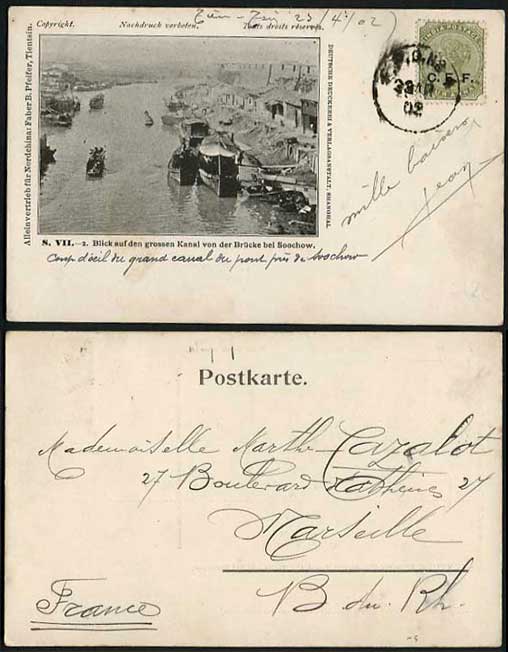 Tien-Tsin 23/4/02
Copyright. Nachdruck verboten. Tous droits réservés.
Alleinvertrieb für Nordchina: Faber B. Pfeifer, Tientsin.
DEUTSCHE DRUCKEREI & VERLAGSANSTALT, SHANGHAI.
C. E. F.
02
mille baisers
Jean
S. VII.—2. Blick auf den grossen Kanal von der Brücke bei Soochow.
Coup d'œil du grand canal du pont près de Soochow
Postkarte.
Mademoiselle Marthe Cazalot
27 Boulevard d'Athènes 27
Marseille
B. du. Rh.
France